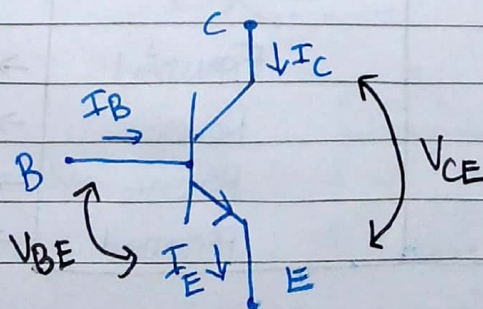 C
↓I_C
I_B
→
B
V_CE
V_BE
I_E ↓
E